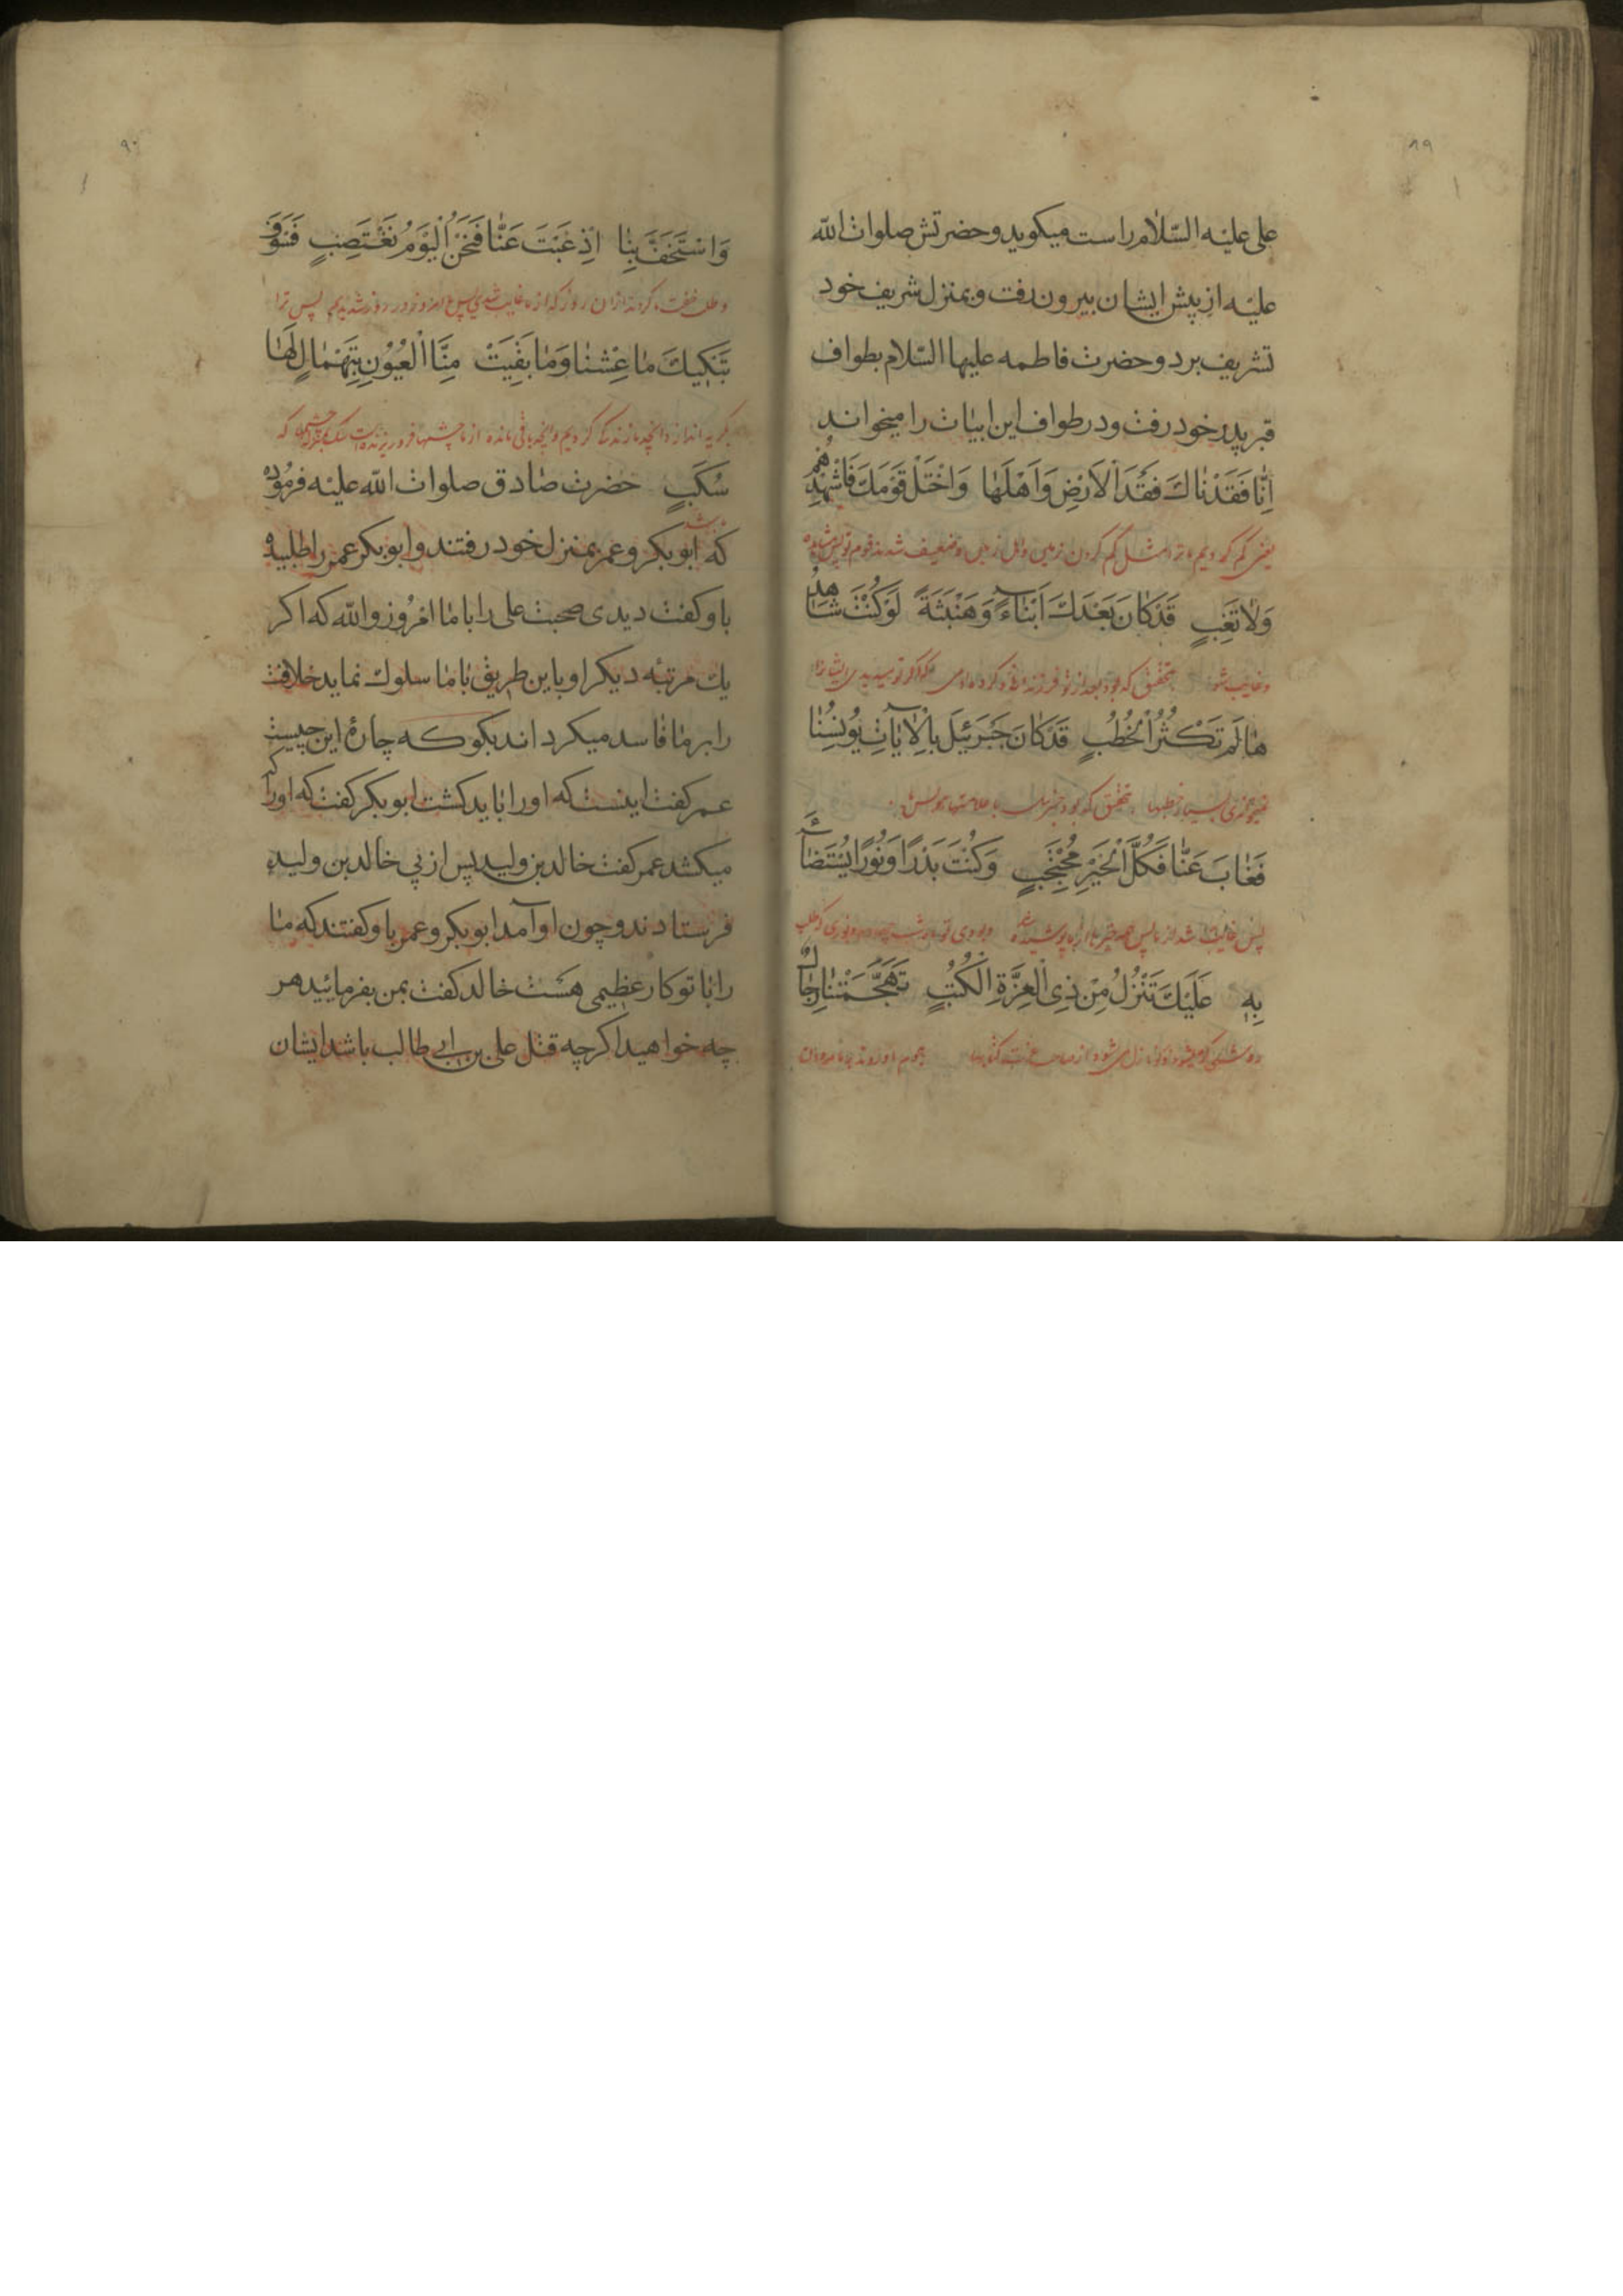 ۸۹
علی علیه السّلام راست میکوید و حضرتش صلوات الله
علیه از پیش ایشان بیرون رفت و بمنزل شریف خود
تشریف برد و حضرت فاطمه علیها السّلام بطواف
قبر پدر خود رفت و در طواف این ابیات را میخواند
اِنّا فَقَدْناكَ فَقْدَ الْاَرْضِ وَاَهْلَها وَاخْتَلَّ قَوْمُكَ فَاشْهَدْهُمْ
یعنی کم کردیم ما ترا مثل کم کردن زمین و اهل زمین و ضعیف شدند قوم تو پس
وَلا تَغِبِ قَدْكانَ بَعْدَكَ اَبْناءً وَهَنْبَثَةً لَوْكُنْتَ شاهِدُ
وغایب شو بتحقیق که بود بعد از تو
هالَمْ تَكْثُرُ الْخُطُبِ قَدْكانَ جَبْرَئیلَ بِالْایاتِ یُونِسُنا
بتحقیق که بود جبرئیل با علامتها مونس ما
فَغابَ عَنّا فَكُلَّ الْخَیْرِ مُحْتَجَبٍ وَكُنْتَ بَدْرًا وَنُورًا یُسْتَضاءُ
پس غایب شد از ما پس همه خیر
بِهِ عَلَیْكَ تَنْزُلُ مِنْ ذِی الْعِزَّةِ الْكُتُبِ تَهَجَّمَتْنا رِجالٌ
روشنی
۹۰
وَاسْتَخَفَّ بِنا اِذْ غِبْتَ عَنّا فَنَحْنُ الْیَوْمُ نَغْتَصِبٍ فَسَوْفَ
وطلب خفت کردند از آن روز که از ما غایب شدی پس ما امروز پس ترا
تَبْكِیكَ ما عِشْنا وَما بَقِیَتْ مِنَّا الْعُیُوُنِ بِتِهْمالٍ لَها
بگریه اندازد آنچه ما زندگی کردیم و آنچه باقی مانده از ما چشمها
سَكَبٍ حضرت صادق صلوات الله علیه فرموده
که ابو بکر و عمر بمنزل خود رفتند و ابو بکر عمر را طلبیده
باو کفت دیدی صحبت علی را با ما امروز و الله که اکر
یك مرتبه دیکر او باین طریق با ما سلوك نماید خلافت
را بر ما فاسد میکرد اند بکو که چارۀ این چیست
عمر کفت اینست که او را باید کشت ابو بکر کفت که او را که
میکشد عمر کفت خالد بن ولید پس از پی خالد بن ولید
فرستادند و چون او آمد ابو بکر و عمر باو کفتند که ما
را با تو کار عظیمی هست خالد کفت بمن بفرمایید هر
چه خواهید اکرچه قتل علی بن ابی طالب باشد ایشان